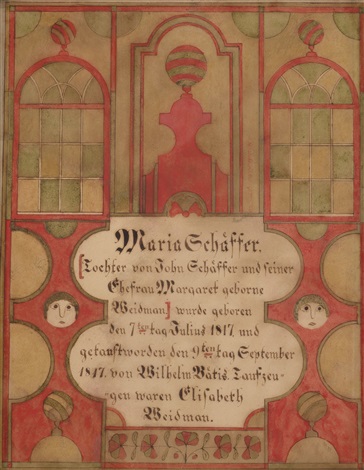 Maria Schäffer.
[Tochter von John Schäffer und seiner
Ehefrau Margaret geborne
Weidman] wurde geboren
den 7ten tag Julius 1817 und
getauft worden den 9ten tag September
1817. von Wilhelm Bätis. Taufzeu-
gen waren Elisabeth
Weidman.